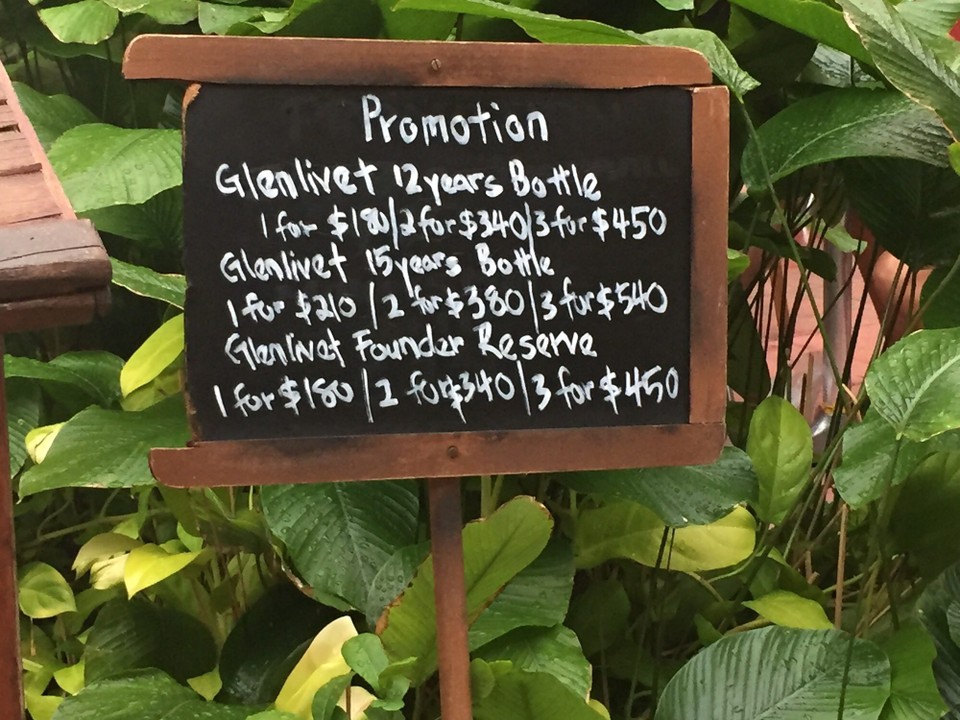 Promotion
Glenlivet 12years Bottle
1 for $180/2 for $340/3 for $450
Glenlivet 15years Bottle
1 for $210 / 2 for $380/3 for $540
Glenlivet Founder Reserve
1 for $180 / 2 for $340/3 for $450